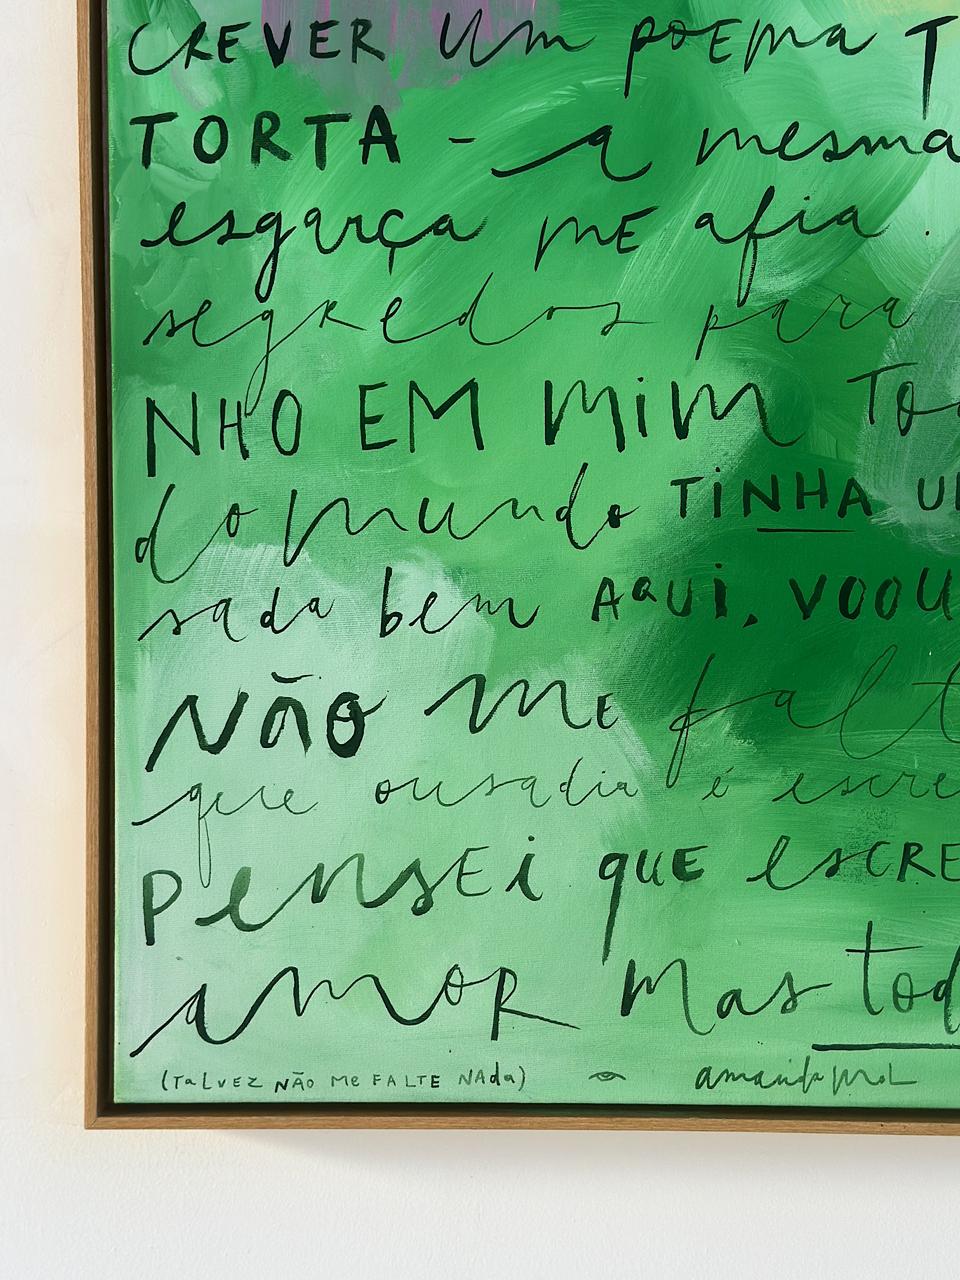 CREVER um poema T
TORTA - a mesma
esgarça ME afia.
segredos para
NHO EM MiM To
do mundo TiNHA UM
sada bem AQUi. VOOU
NÃO ME falt
que ousadia é escre
PensEi que esCRE
amor mas tod
(TaLVEZ NÃO Me FALTE NAda) amanda mol